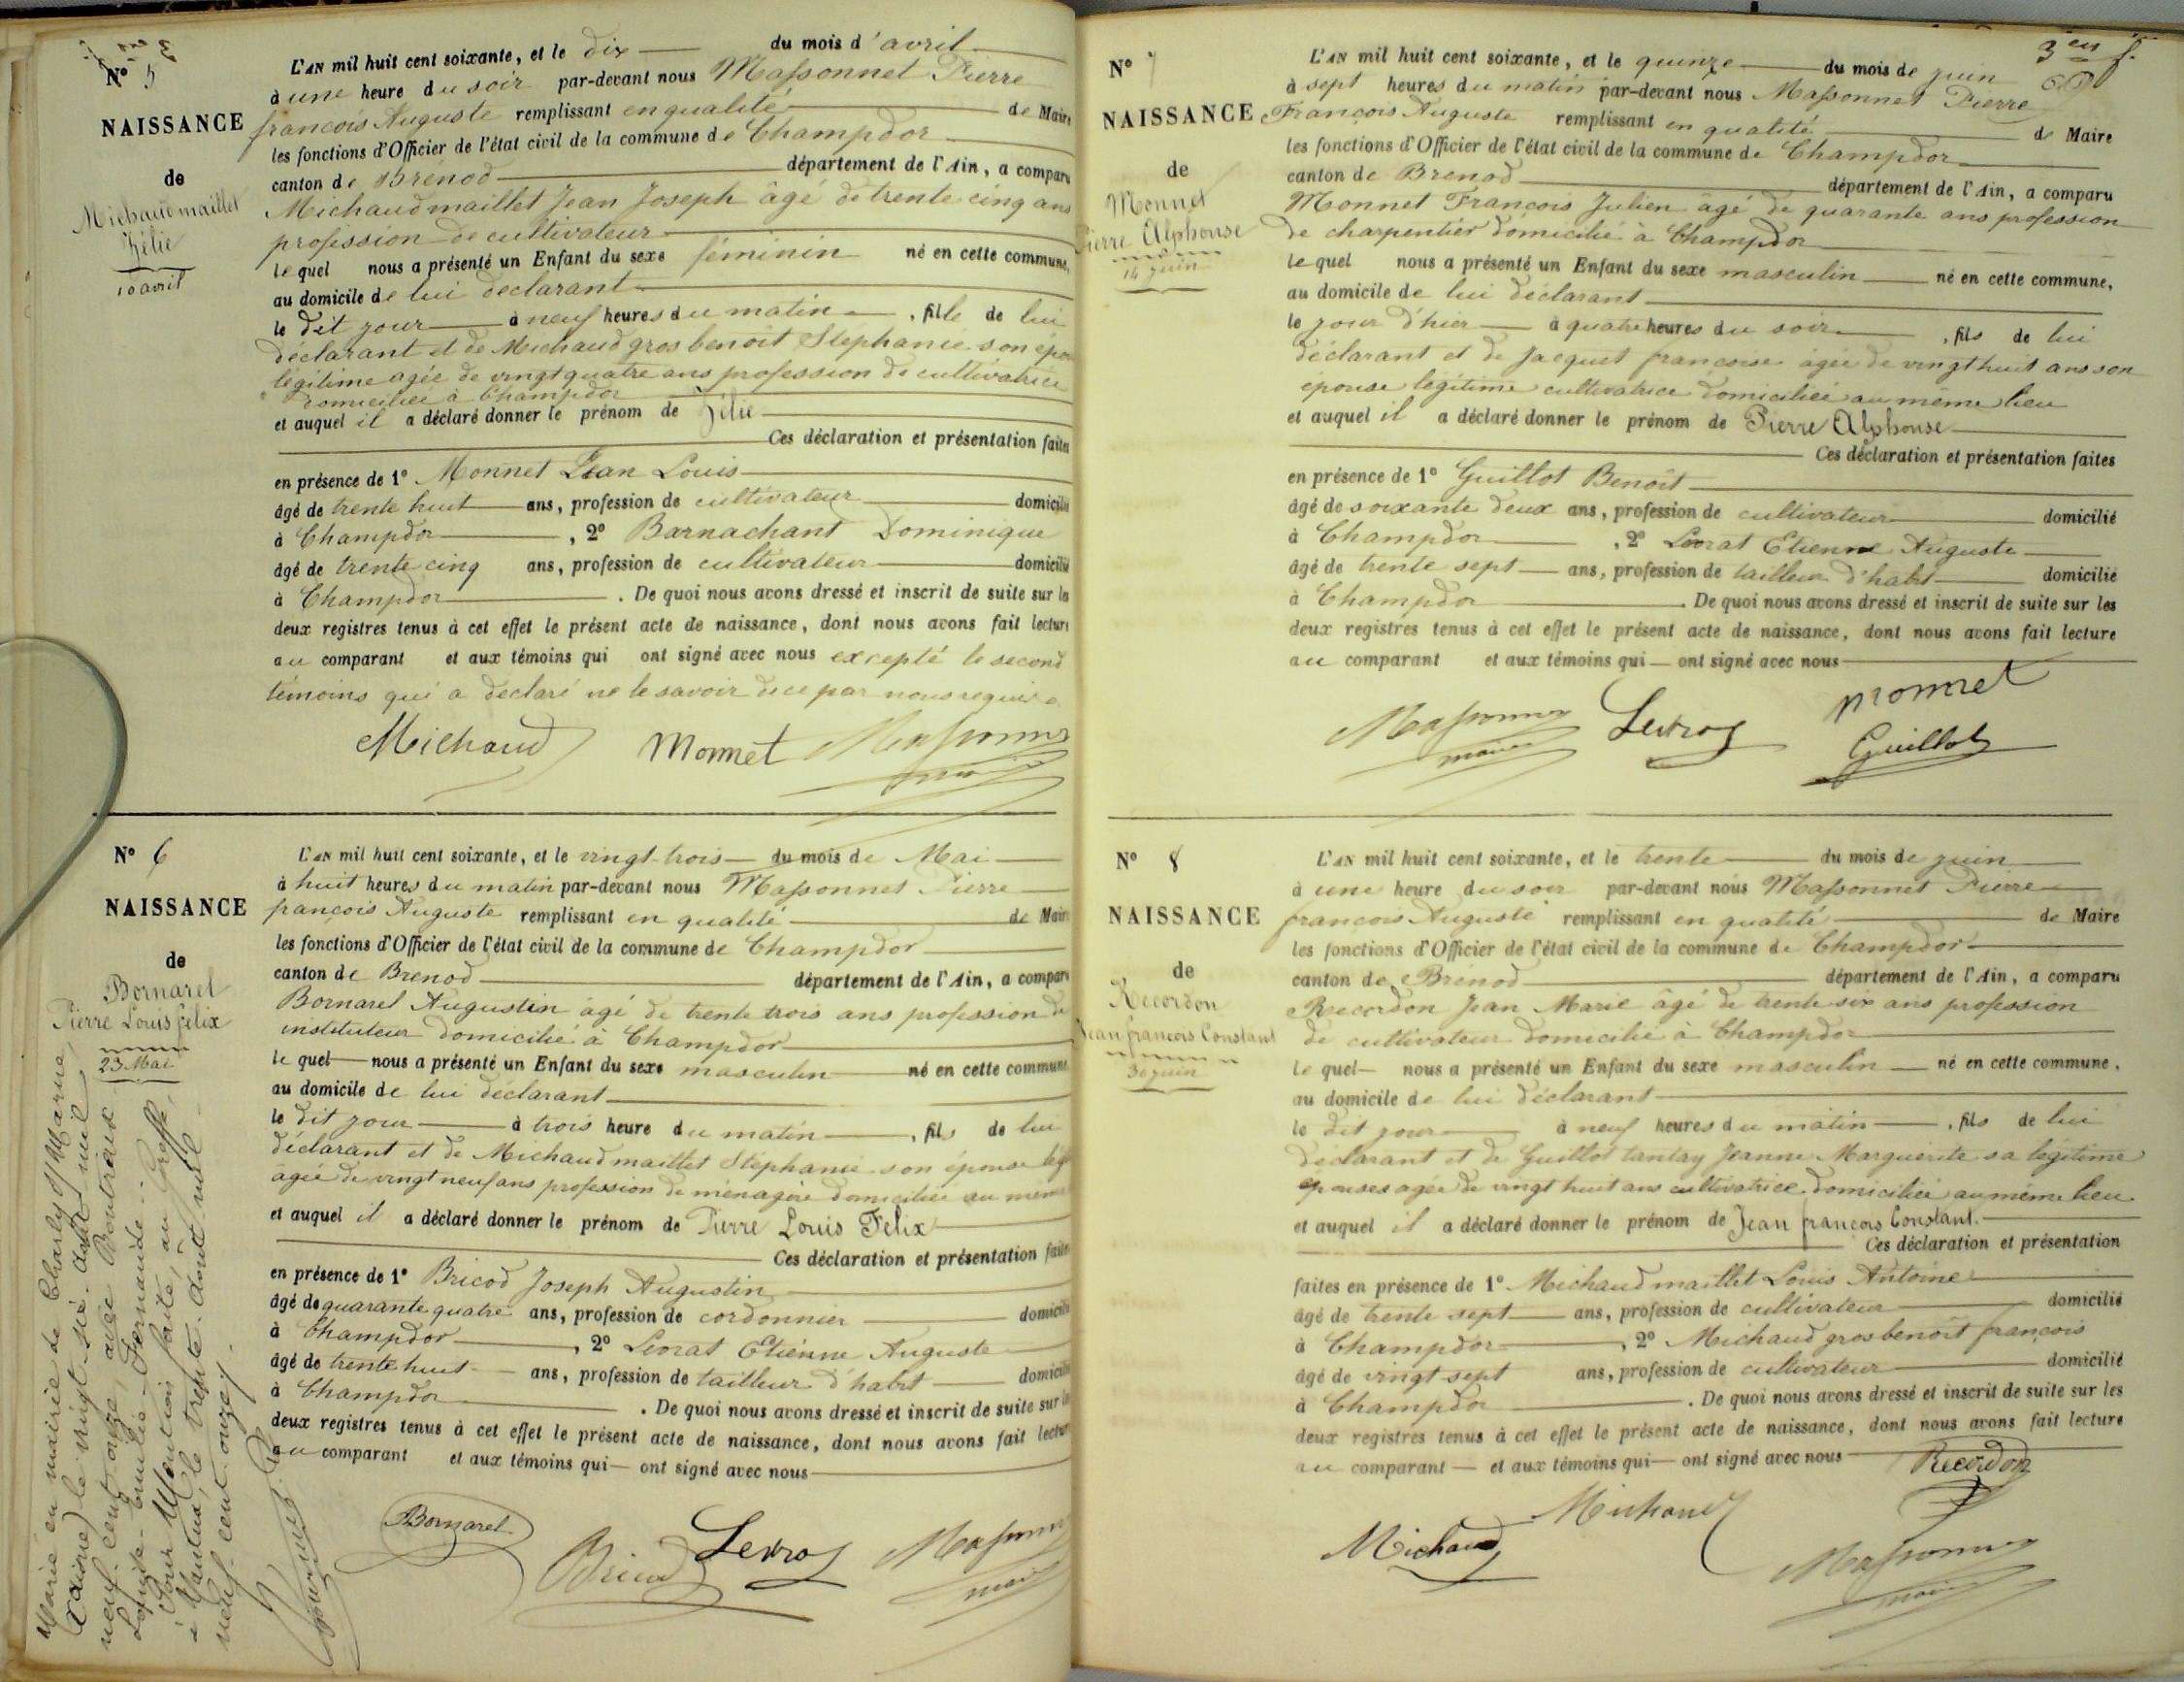 Nº 5
NAISSANCE
de
Michaudmaillet
Zélie
10 avril
L'AN mil huit cent soixante, et le dix du mois d'avril
à une heure du soir par-devant nous Massonnet Pierre
françois Auguste remplissant en qualité de Maire
les fonctions d'Officier de l'état civil de la commune de Champdor
canton de Brénod département de l'Ain, a comparu
Michaudmaillet Jean Joseph âgé de trente cinq ans
profession de cultivateur
lequel nous a présenté un Enfant du sexe féminin né en cette commune,
au domicile de lui déclarant
le dit jour à neuf heures du matin, fille de lui
déclarant et de Michaud gros benoit Stéphanie son épouse
légitime agée de vingt quatre ans profession de cultivatrice
domiciliée à Champdor
et auquel il a déclaré donner le prénom de Zélie
Ces déclaration et présentation faites
en présence de 1º Monnet Jean Louis
âgé de trente huit ans, profession de cultivateur domicilié
à Champdor, 2º Barnachant Dominique
âgé de trente cinq ans, profession de cultivateur domicilié
à Champdor. De quoi nous avons dressé et inscrit de suite sur les
deux registres tenus à cet effet le présent acte de naissance, dont nous avons fait lecture
au comparant et aux témoins qui ont signé avec nous excepté le second
témoins qui a déclaré ne le savoir de ce par nous requis
Michaud Monnet Massonnet
maire
Nº 6
NAISSANCE
de
Bornarel
Pierre Louis félix
23 Mai
L'AN mil huit cent soixante, et le vingt-trois du mois de Mai
à huit heures du matin par-devant nous Massonnet Pierre
françois Auguste remplissant en qualité de Maire
les fonctions d'Officier de l'état civil de la commune de Champdor
canton de Brenod département de l'Ain, a comparu
Bornarel Augustin âgé de trente trois ans profession de
instituteur domicilié à Champdor
le quel nous a présenté un Enfant du sexe masculin né en cette commune
au domicile de lui déclarant
le dit jour à trois heure du matin, fils de lui
déclarant et de Michaudmaillet Stéphanie son épouse lég
agée de vingt neuf ans profession de ménagère domiciliée au même
et auquel il a déclaré donner le prénom de Pierre Louis Félix
Ces déclaration et présentation faites
en présence de 1º Bricod Joseph Augustin
âgé de quarante quatre ans, profession de cordonnier domicilié
à Champdor, 2º Levrat Etienne Auguste
âgé de trente huit ans, profession de tailleur d'habit domicilié
à Champdor. De quoi nous avons dressé et inscrit de suite sur les
deux registres tenus à cet effet le présent acte de naissance, dont nous avons fait lecture
au comparant et aux témoins qui ont signé avec nous
Bornarel Bricod Levrat Massonnet
maire
Marié en mairie de Charly s/ Marne,
(Aisne) le vingt six août mil
neuf cent onze, avec Boutroux
Louise-Emilie-Fernande.
Pour Mention faite, au Greffe,
à Nantua, le trente août mil
neuf cent onze.
3 eu f.
Nº 7
NAISSANCE
de
Monnet
Pierre Alphonse
14 juin
L'AN mil huit cent soixante, et le quinze du mois de juin
à sept heures du matin par-devant nous Massonnet Pierre
François Auguste remplissant en qualité de Maire
les fonctions d'Officier de l'état civil de la commune de Champdor
canton de Brénod département de l'Ain, a comparu
Monnet François Julien âgé de quarante ans profession
de charpentier domicilié à Champdor
le quel nous a présenté un Enfant du sexe masculin né en cette commune,
au domicile de lui déclarant
le jour d'hier à quatre heures du soir, fils de lui
déclarant et de Jacquet francoise âgée de vingt huit ans son
épouse légitime cultivatrice domiciliée au même lieu
et auquel il a déclaré donner le prénom de Pierre Alphonse
Ces déclaration et présentation faites
en présence de 1º Guillot Benoit
âgé de soixante deux ans, profession de cultivateur domicilié
à Champdor, 2º Levrat Etienne Auguste
âgé de trente sept ans, profession de tailleur d'habit domicilié
à Champdor. De quoi nous avons dressé et inscrit de suite sur les
deux registres tenus à cet effet le présent acte de naissance, dont nous avons fait lecture
au comparant et aux témoins qui ont signé avec nous
Massonnet Levrat Monnet
maire Guillot
Nº 8
NAISSANCE
de
Recordon
Jean francois Constant
30 juin
L'AN mil huit cent soixante, et le trente du mois de juin
à une heure du soir par-devant nous Massonnet Pierre
francois Auguste remplissant en qualité de Maire
les fonctions d'Officier de l'état civil de la commune de Champdor
canton de Brénod département de l'Ain, a comparu
Recordon Jean Marie âgé de trente-six ans profession
de cultivateur domicilié à Champdor
le quel nous a présenté un Enfant du sexe masculin né en cette commune,
au domicile de lui déclarant
le dit jour à neuf heures du matin, fils de lui
déclarant et de Guillot tantay Jeanne Marguerite sa légitime
épouses agée de vingt huit ans cultivatrice domiciliée au même lieu
et auquel il a déclaré donner le prénom de Jean francois Constant.
Ces déclaration et présentation
faites en présence de 1º Michaudmaillet Louis Antoine
âgé de trente sept ans, profession de cultivateur domicilié
à Champdor, 2º Michaud gros benoit françois
âgé de vingt-sept ans, profession de cultivateur domicilié
à Champdor. De quoi nous avons dressé et inscrit de suite sur les
deux registres tenus à cet effet le présent acte de naissance, dont nous avons fait lecture
au comparant et aux témoins qui ont signé avec nous Recordon
Michaud Michaud
Massonnet
maire